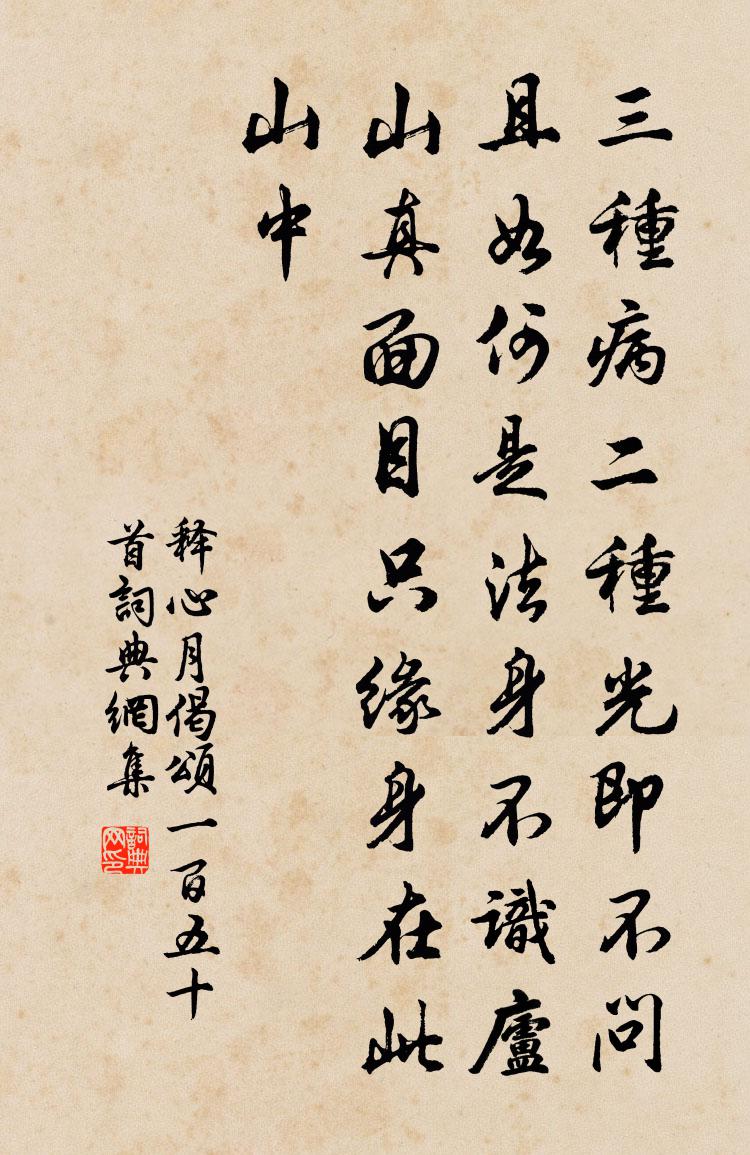 三種病二種光即不問
且如何是法身不識廬
山真面目只緣身在此
山中
释心月偈頌一百五十
首詞典網集
詞典網印